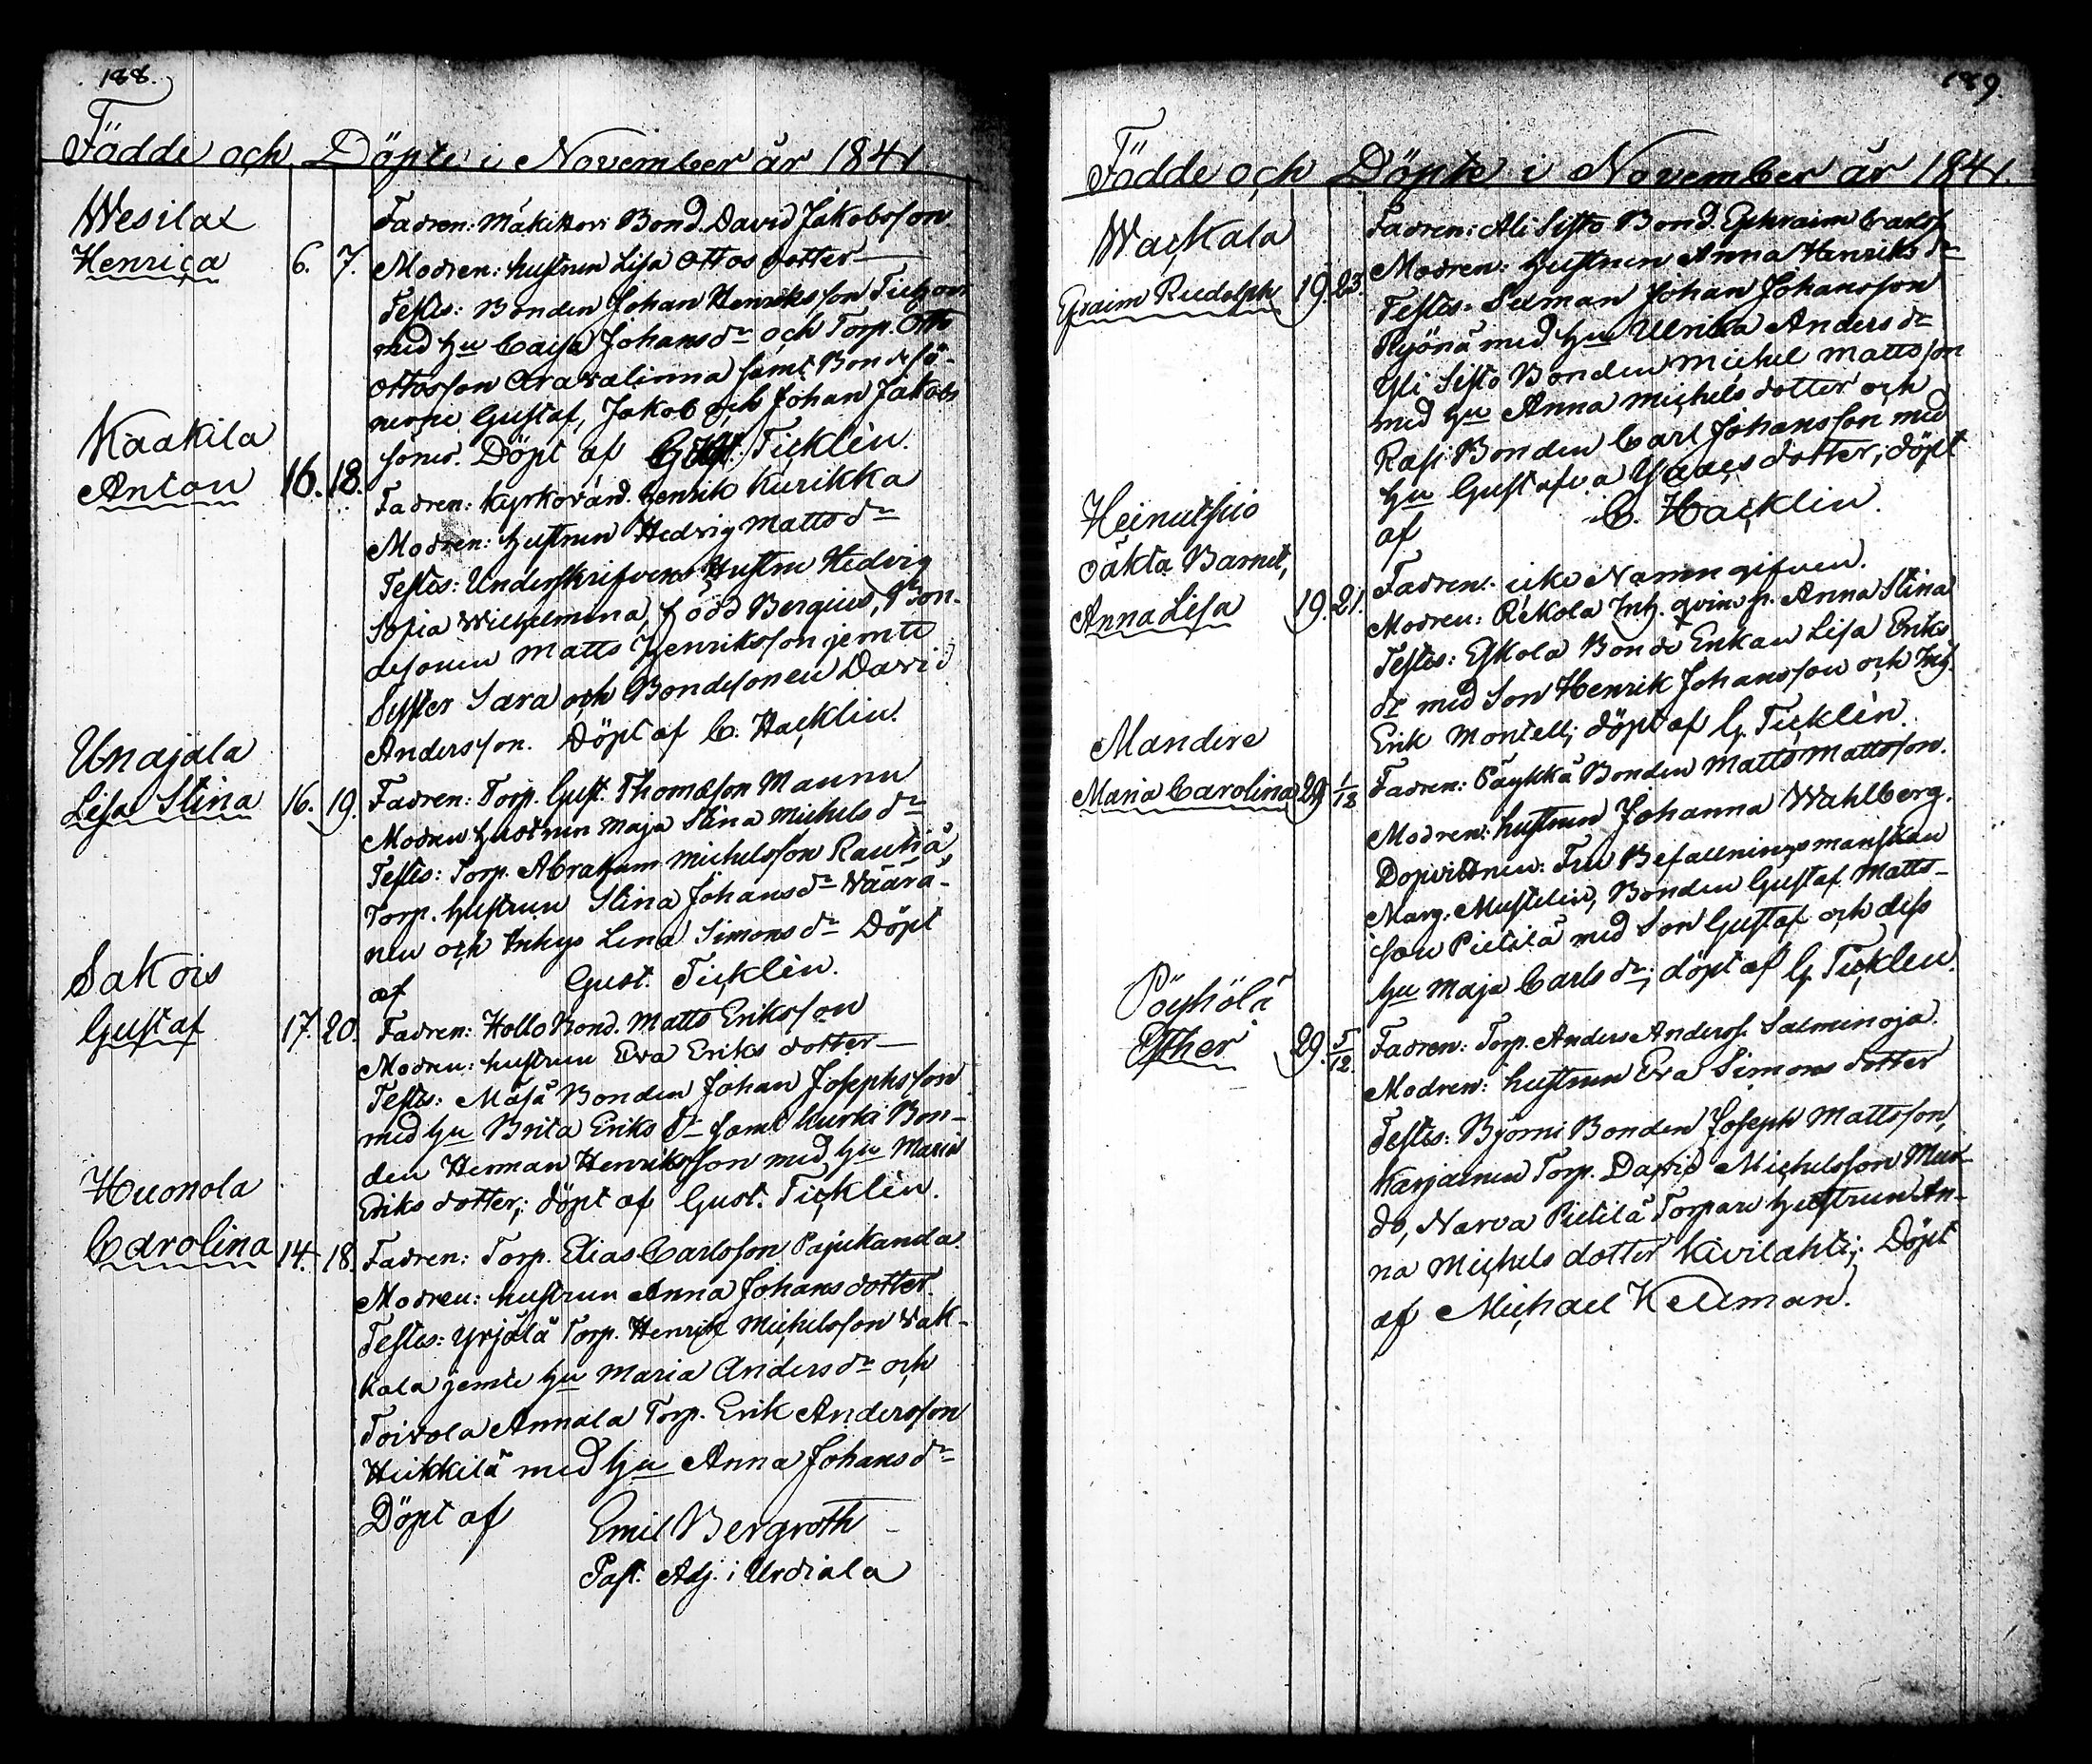 188.
Födde och Döpte i November år 1841
Wesilax
Henrica 6. 7.
Fadren: Mäkikkori Bond. David Jakobsson
Modren: hustrun Lisa Ottos dotter
Testes: Bonden Johan Henriksson
med hu Caisa Johans dr och Torp. Otto
Ottosson Aravalinna samt Bondesö-
nerne Gustaf, Jakob och Johan Jakobs
söner. Döpt af Gust. Ticklén.
Kaakila
Anton 16. 18.
Fadren: Kyrkovärd. Henrik Kurikka
Modren: hustrun Hedvig Matts dr
Testes: Underskrifvens Hustru Hedvig
Sofia Wilhelmina, född Bergius, Bon-
desonen Matts Henriksson jemte
Syster Sara och Bondesonen David
Andersson. Döpt af C. Hacklin.
Unajala
Lisa Stina 16. 19.
Fadren: Torp. Gust. Thomasson Maunu
Modren hustrun Maja Stina Michels dr
Testes: Torp. Abraham Michelsson Rautiä,
Torp. hustrun Stina Johans dr Väärä-
nen och Inhys Lena Simons dr Döpt
af Gust. Ticklén.
Sakois
Gustaf 17. 20.
Fadren: Hollo Bond. Matts Eriksson
Modren: hustrun Eva Eriks dotter
Testes: Mäsä Bonden Johan Josephsson
med hu Brita Eriks dr samt Kurki Bon-
den Herman Henriksson med hu Maria
Eriks dotter; döpt af Gust. Ticklén.
Huonola
Carolina 14. 18.
Fadren: Torp. Elias Carlsson Pajukanda.
Modren: hustrun Anna Johans dotter.
Testes: Yrjälä Torp. Henrik Michelsson Vak-
kala jemte hu Maria Anders dr och
Toivola Annala Torp. Erik Andersson
Heikkilä med hu Anna Johans dr
Döpt af Emil Bergroth
Past. Adj. i Urdiala
189.
Födde och Döpte i November år 1841.
Wackala
Efraim Rudolph 19. 23.
Fadren: Ali Sisto Bond. Ephraim Carlss.
Modren: hustrun Anna Henriks dr
Testes: Sexman Johan Johansson
Ryönä med hu Ulrika Anders dr
Yli Sisto Bonden Michel Mattsson
med hu Anna Michels dotter och
Rasi Bonden Carl Johansson med
hu Gustafva Isaacs dotter; döpt
af C. Hacklin.
Heinutsuo
oäkta Barnet,
Anna Lisa 19. 21.
Fadren: icke Namngifven.
Modren: Rekola Inh. qvinsp. Anna Stina
Testes: Eskola Bonde Enkan Lisa Eriks
dr med Son Henrik Johansson och Inh.
Erik Montell; döpt af G. Ticklén.
Mandere
Maria Carolina 29. 1/12
Fadren: Päykkä Bonden Matts Mattsson.
Modren: hustrun Johanna Wahlberg.
Dopvittnen: Fru Befallningsmanskan
Marg. Mustelin, Bonden Gustaf Matts-
son Pietilä med Son Gustaf och dess
hu Maja Carls dr; döpt af G. Ticklén.
Pöyhölä
Esther 29. 5/12
Fadren: Torp. Anders Anderss. Salminoja.
Modren: hustrun Eva Simons dotter
Testes: Björni Bonden Joseph Mattsson,
Karjainen Torp. David Michelsson
Narva Pietilä Torpare hustrun An-
na Michels dotter Kivilahti; Döpt
af Michael Kellman.